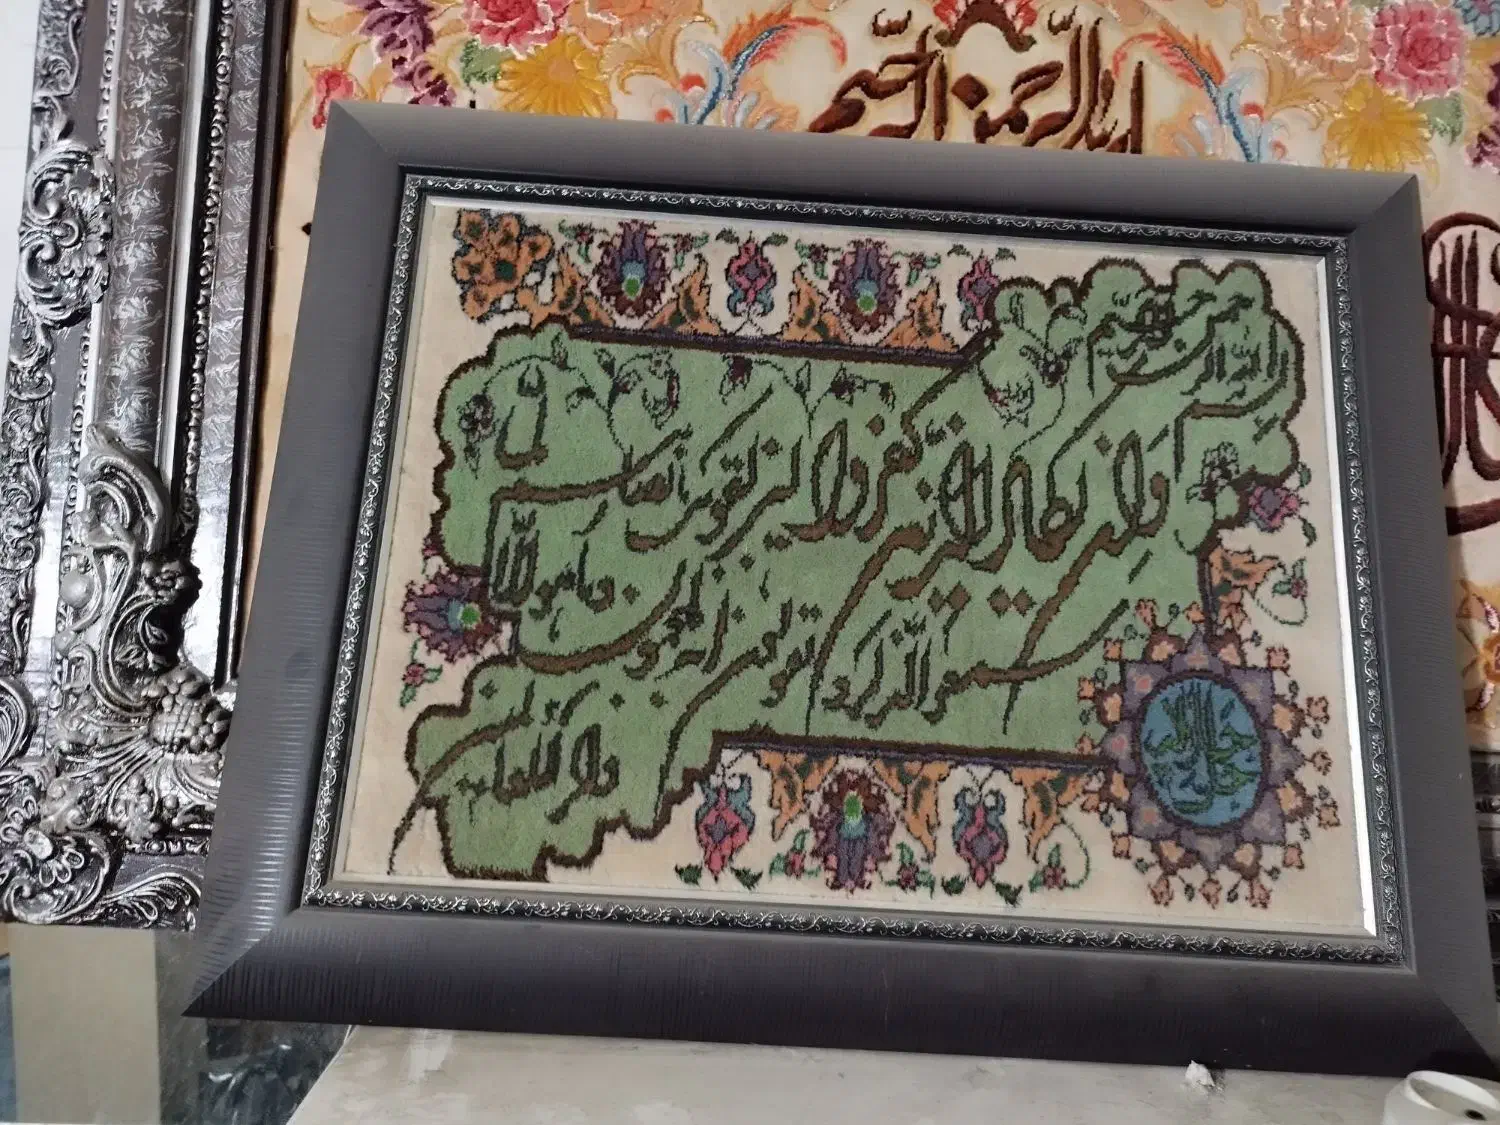 الله الرحمن الرحیم
بسم الله الرحمن الرحیم
وان یکاد الذین کفروا لیزلقونک بابصارهم لما
سمعوا الذکر و یقولون انه لمجنون و ما هو الا
ذکر للعالمین